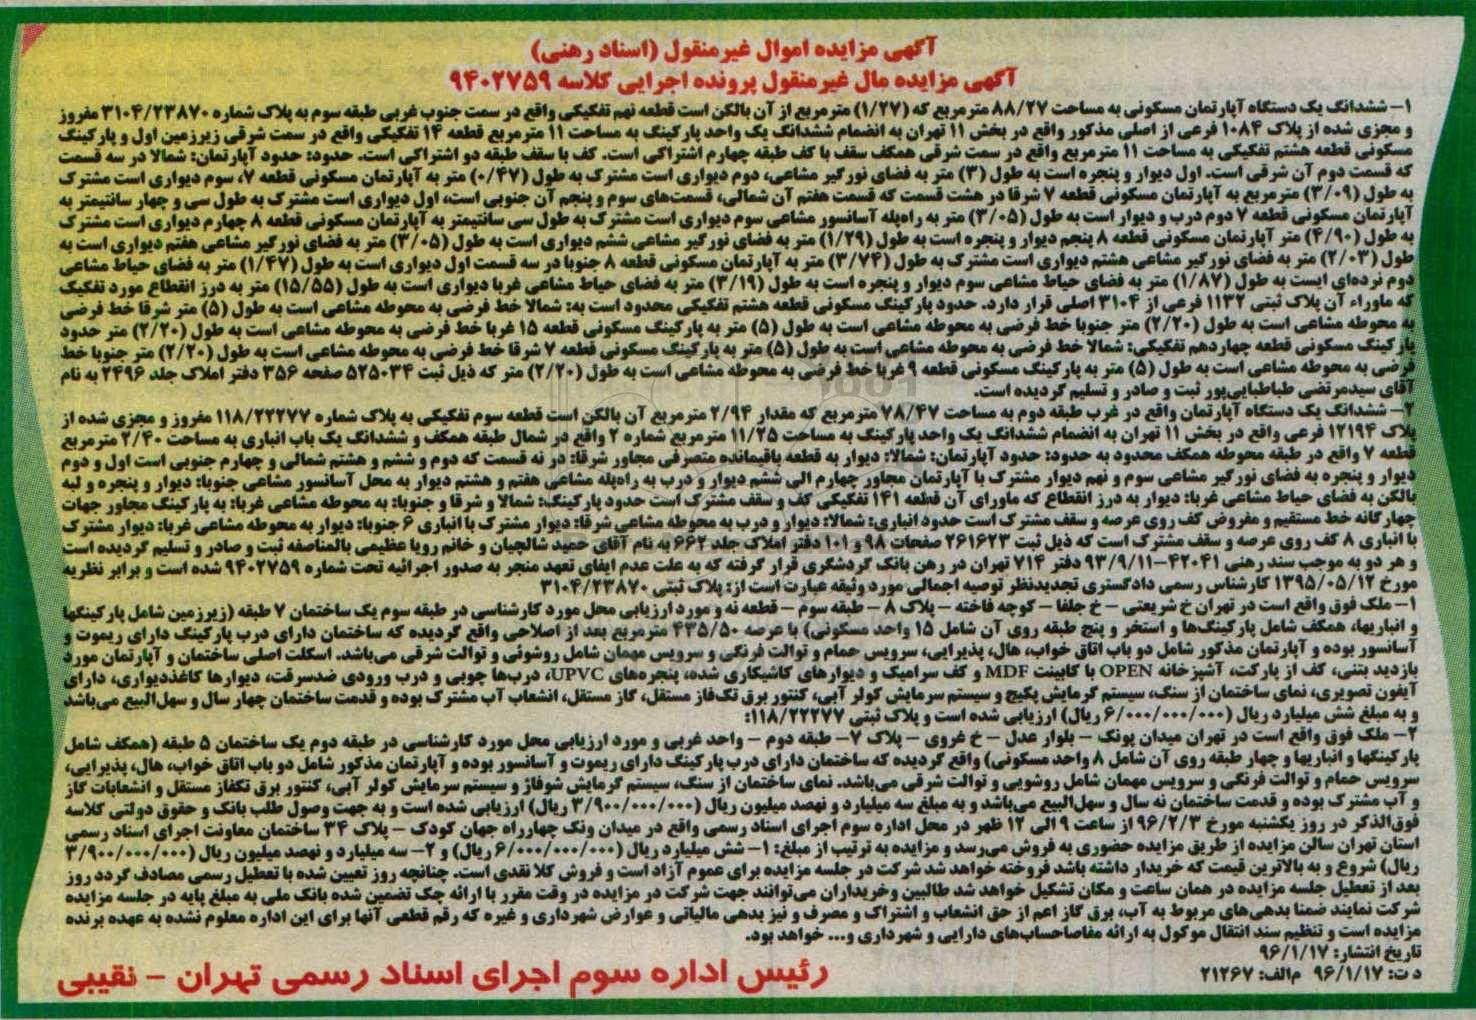 آگهی مزایده اموال غیرمنقول (اسناد رهنی)
آگهی مزایده مال غیرمنقول پرونده اجرایی کلاسه ۹۴۰۲۷۵۹
۱– ششدانگ یک دستگاه آپارتمان مسکونی به مساحت ۸۸/۲۷ مترمربع که (۱/۲۷) مترمربع از آن بالکن است قطعه نهم تفکیکی واقع در سمت جنوب غربی طبقه سوم به پلاک شماره ۳۱۰۴/۲۳۸۷۰ مفروز
و مجزی شده از پلاک ۱۰۸۴ فرعی از اصلی مذکور واقع در بخش ۱۱ تهران به انضمام ششدانگ یک واحد پارکینگ به مساحت ۱۱ مترمربع قطعه ۱۴ تفکیکی واقع در سمت شرقی زیرزمین اول و پارکینگ
مسکونی قطعه هشتم تفکیکی به مساحت ۱۱ مترمربع واقع در سمت شرقی همکف سقف با کف طبقه چهارم اشتراکی است. کف با سقف طبقه دو اشتراکی است. حدود: حدود آپارتمان: شمالا در سه قسمت
که قسمت دوم آن شرقی است. اول دیوار و پنجره است به طول (۳) متر به فضای نورگیر مشاعی، دوم دیواری است مشترک به طول (۰/۴۷) متر به آپارتمان مسکونی قطعه ۷، سوم دیواری است مشترک
به طول (۳/۰۹) مترمربع به آپارتمان مسکونی قطعه ۷ شرقا در هشت قسمت که قسمت هفتم آن شمالی، قسمت‌های سوم و پنجم آن جنوبی است، اول دیواری است مشترک به طول سی و چهار سانتیمتر به
آپارتمان مسکونی قطعه ۷ دوم درب و دیوار است به طول (۳/۰۵) متر به راه‌پله آسانسور مشاعی سوم دیواری است مشترک به طول سی سانتیمتر به آپارتمان مسکونی قطعه ۸ چهارم دیواری است مشترک
به طول (۴/۹۰) متر آپارتمان مسکونی قطعه ۸ پنجم دیوار و پنجره است به طول (۱/۲۹) متر به فضای نورگیر مشاعی ششم دیواری است به طول (۳/۰۵) متر به فضای نورگیر مشاعی هفتم دیواری است به
طول (۲/۰۳) متر به فضای نورگیر مشاعی هشتم دیواری است مشترک به طول (۳/۷۴) متر به آپارتمان مسکونی قطعه ۸ جنوبا در سه قسمت اول دیواری است به طول (۱/۴۷) متر به فضای حیاط مشاعی
دوم نرده‌ای ایست به طول (۱/۸۷) متر به فضای حیاط مشاعی سوم دیوار و پنجره است به طول (۳/۱۹) متر به فضای حیاط مشاعی غربا دیواری است به طول (۱۵/۵۵) متر به درز انقطاع مورد تفکیک
که ماوراء آن پلاک ثبتی ۱۱۳۲ فرعی از ۳۱۰۴ اصلی قرار دارد. حدود پارکینگ مسکونی قطعه هشتم تفکیکی محدود است به: شمالا خط فرضی به محوطه مشاعی است به طول (۵) متر شرقا خط فرضی
به محوطه مشاعی است به طول (۲/۲۰) متر جنوبا خط فرضی به محوطه مشاعی است به طول (۵) متر به پارکینگ مسکونی قطعه ۱۵ غربا خط فرضی به محوطه مشاعی است به طول (۲/۲۰) متر حدود
پارکینگ مسکونی قطعه چهاردهم تفکیکی: شمالا خط فرضی به محوطه مشاعی است به طول (۵) متر به پارکینگ مسکونی قطعه ۷ شرقا خط فرضی به محوطه مشاعی است به طول (۲/۲۰) متر جنوبا خط
فرضی به محوطه مشاعی است به طول (۵) متر به پارکینگ مسکونی قطعه ۹ غربا خط فرضی به محوطه مشاعی است به طول (۲/۲۰) متر که ذیل ثبت ۵۲۵۰۳۴ صفحه ۳۵۶ دفتر املاک جلد ۲۴۹۶ به نام
آقای سیدمرتضی طباطبایی‌پور ثبت و صادر و تسلیم گردیده است.
۲– ششدانگ یک دستگاه آپارتمان واقع در غرب طبقه دوم به مساحت ۷۸/۴۷ مترمربع که مقدار ۲/۹۴ مترمربع آن بالکن است قطعه سوم تفکیکی به پلاک شماره ۱۱۸/۲۲۲۷۷ مفروز و مجزی شده از
پلاک ۱۲۱۹۴ فرعی واقع در بخش ۱۱ تهران به انضمام ششدانگ یک واحد پارکینگ به مساحت ۱۱/۲۵ مترمربع شماره ۲ واقع در شمال طبقه همکف و ششدانگ یک باب انباری به مساحت ۲/۴۰ مترمربع
قطعه ۷ واقع در طبقه محوطه همکف محدود به حدود: حدود آپارتمان: شمالا: دیوار به قطعه باقیمانده متصرفی مجاور شرقا: در نه قسمت که دوم و ششم و هشتم شمالی و چهارم جنوبی است اول و دوم
دیوار و پنجره به فضای نورگیر مشاعی سوم و نهم دیوار مشترک با آپارتمان مجاور چهارم الی ششم دیوار و درب به راه‌پله مشاعی هفتم و هشتم دیوار به محل آسانسور مشاعی جنوبا: دیوار و پنجره و لبه
بالکن به فضای حیاط مشاعی غربا: دیوار به درز انقطاع که ماورای آن قطعه ۱۴۱ تفکیکی کف و سقف مشترک است حدود پارکینگ: شمالا و شرقا و جنوبا: به محوطه مشاعی غربا: به پارکینگ مجاور جهات
چهارگانه خط مستقیم و مفروض کف روی عرصه و سقف مشترک است حدود انباری: شمالا: دیوار و درب به محوطه مشاعی شرقا: دیوار مشترک با انباری ۶ جنوبا: دیوار به محوطه مشاعی غربا: دیوار مشترک
با انباری ۸ کف روی عرصه و سقف مشترک است که ذیل ثبت ۲۶۱۶۲۳ صفحات ۹۸ و ۱۰۱ دفتر املاک جلد ۶۶۲ به نام آقای حمید شالچیان و خانم رویا عظیمی بالمناصفه ثبت و صادر و تسلیم گردیده است
و هر دو به موجب سند رهنی ۴۲۰۴۱–۹۳/۹/۱۱ دفتر ۷۱۴ تهران در رهن بانک گردشگری قرار گرفته که به علت عدم ایفای تعهد منجر به صدور اجرائیه تحت شماره ۹۴۰۲۷۵۹ شده است و برابر نظریه
مورخ ۱۳۹۵/۰۵/۱۲ کارشناس رسمی دادگستری تجدیدنظر توصیه اجمالی مورد وثیقه عبارت است از: پلاک ثبتی ۳۱۰۴/۲۳۸۷۰
۱– ملک فوق واقع است در تهران خ شریعتی – خ جلفا – کوچه فاخته – پلاک ۸ – طبقه سوم – قطعه نه و مورد ارزیابی محل مورد کارشناسی در طبقه سوم یک ساختمان ۷ طبقه (زیرزمین شامل پارکینگها
و انباریها، همکف شامل پارکینگ‌ها و استخر و پنج طبقه روی آن شامل ۱۵ واحد مسکونی) با عرصه ۴۳۵/۵۰ مترمربع بعد از اصلاحی واقع گردیده که ساختمان دارای درب پارکینگ دارای ریموت و
آسانسور بوده و آپارتمان مذکور شامل دو باب اتاق خواب، هال، پذیرایی، سرویس حمام و توالت فرنگی و سرویس مهمان شامل روشوئی و توالت شرقی می‌باشد. اسکلت اصلی ساختمان و آپارتمان مورد
بازدید بتنی، کف از پارکت، آشپزخانه OPEN با کابینت MDF و کف سرامیک و دیوارهای کاشیکاری شده، پنجره‌های UPVC، درب‌ها چوبی و درب ورودی ضدسرقت، دیوارها کاغذدیواری، دارای
آیفون تصویری، نمای ساختمان از سنگ، سیستم گرمایش پکیج و سیستم سرمایش کولر آبی، کنتور برق تک‌فاز مستقل، گاز مستقل، انشعاب آب مشترک بوده و قدمت ساختمان چهار سال و سهل‌البیع می‌باشد
و به مبلغ شش میلیارد ریال (۶/۰۰۰/۰۰۰/۰۰۰ ریال) ارزیابی شده است و پلاک ثبتی ۱۱۸/۲۲۲۷۷:
۲– ملک فوق واقع است در تهران میدان پونک – بلوار عدل – خ غروی – پلاک ۷– طبقه دوم – واحد غربی و مورد ارزیابی محل مورد کارشناسی در طبقه دوم یک ساختمان ۵ طبقه (همکف شامل
پارکینگها و انباریها و چهار طبقه روی آن شامل ۸ واحد مسکونی) واقع گردیده که ساختمان دارای درب پارکینگ دارای ریموت و آسانسور بوده و آپارتمان مذکور شامل دو باب اتاق خواب، هال، پذیرایی،
سرویس حمام و توالت فرنگی و سرویس مهمان شامل روشویی و توالت شرقی می‌باشد. نمای ساختمان از سنگ، سیستم گرمایش شوفاژ و سیستم سرمایش کولر آبی، کنتور برق تکفاز مستقل و انشعابات گاز
و آب مشترک بوده و قدمت ساختمان نه سال و سهل‌البیع می‌باشد و به مبلغ سه میلیارد و نهصد میلیون ریال (۳/۹۰۰/۰۰۰/۰۰۰ ریال) ارزیابی شده است و به جهت وصول طلب بانک و حقوق دولتی کلاسه
فوق‌الذکر در روز یکشنبه مورخ ۹۶/۲/۳ از ساعت ۹ الی ۱۲ ظهر در محل اداره سوم اجرای اسناد رسمی واقع در میدان ونک چهارراه جهان کودک – پلاک ۳۴ ساختمان معاونت اجرای اسناد رسمی
استان تهران سالن مزایده از طریق مزایده حضوری به فروش می‌رسد و مزایده به ترتیب از مبلغ: ۱– شش میلیارد ریال (۶/۰۰۰/۰۰۰/۰۰۰ ریال) و ۲– سه میلیارد و نهصد میلیون ریال (۳/۹۰۰/۰۰۰/۰۰۰
ریال) شروع و به بالاترین قیمت که خریدار داشته باشد فروخته خواهد شد شرکت در جلسه مزایده برای عموم آزاد است و فروش کلا نقدی است. چنانچه روز تعیین شده با تعطیل رسمی مصادف گردد روز
بعد از تعطیل جلسه مزایده در همان ساعت و مکان تشکیل خواهد شد طالبین وخریداران می‌توانند جهت شرکت در مزایده در وقت مقرر با ارائه چک تضمین شده بانک ملی به مبلغ پایه در جلسه مزایده
شرکت نمایند ضمنا بدهی‌های مربوط به آب، برق گاز اعم از حق انشعاب و اشتراک و مصرف و نیز بدهی مالیاتی و عوارض شهرداری و غیره که رقم قطعی آنها برای این اداره معلوم نشده به عهده برنده
مزایده است و تنظیم سند انتقال موکول به ارائه مفاصاحساب‌های دارایی و شهرداری و... خواهد بود.
تاریخ انتشار: ۹۶/۱/۱۷
د ت: ۹۶/۱/۱۷ م‌الف: ۲۱۲۶۷
رئیس اداره سوم اجرای اسناد رسمی تهران – نقیبی